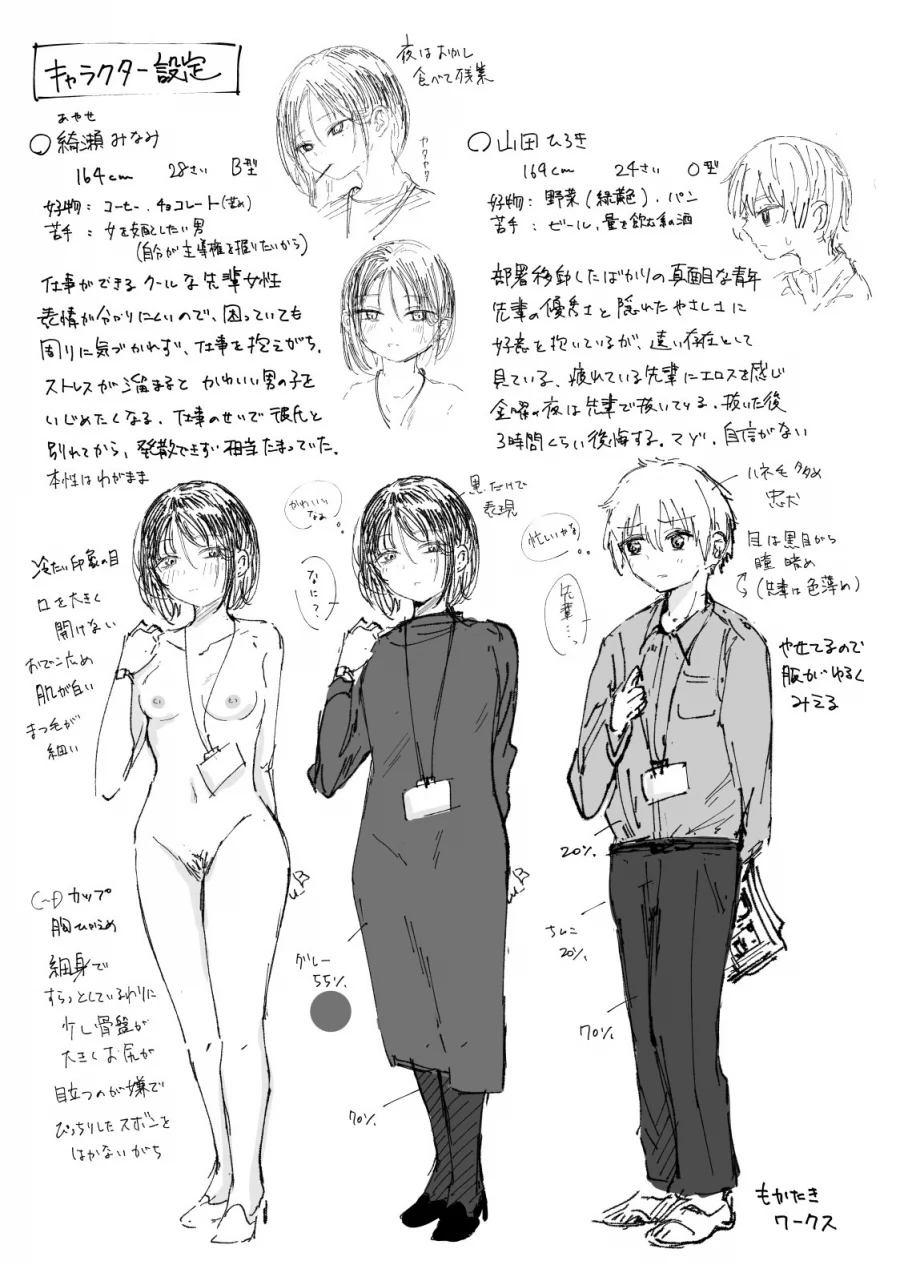 キャラクター設定
あやせ
○綺瀬 みなみ
164cm 28さい B型
好物: コーヒー、チョコレート(甘め)
苦手:
(自分が主導権を握りたいから)
仕事ができる クールな先輩女性
表情が分かりにくいので、困っていても
周りに気づかれず、仕事を抱えがち。
ストレスが溜まると かわいい男の子を
いじめたくなる。仕事のせいで彼氏と
別れてから、発散できず相当たまっていた。
本性はわがまま
夜はおかし
食べて残業
○山田ひろき
169cm 24さい O型
好物: 野菜(緑黄色)、パン
苦手: ビール、量を飲む系の酒
部署移動したばかりの真面目な青年
先輩の優秀さと隠れたやさしさに
好意を抱いているが、遠い存在として
見ている。疲れている先輩にエロスを感じ
金曜の夜は先輩で抜いてる。抜いた後
3時間くらい後悔する。マゾ。自信がない
冷たい印象の目
口を大きく
開けない
おでこため
肌が白い
まつ毛が
細い
かわいい
なぁ
なに?
黒だけで
表現
忙しいかな
先輩…
ハネ毛多め
忠犬
目は黒目がち
瞳 暗め
(先輩は色薄め)
やせてるので
服がゆるく
みえる
C~Dカップ
胸ひかえめ
細身で
すらっとしているわりに
少し骨盤が
大きくお尻が
目立つのが嫌で
ぴっちりしたズボンを
はかないがち
グレー
55%
70%
20%
20%
70%
もかたき
ワークス